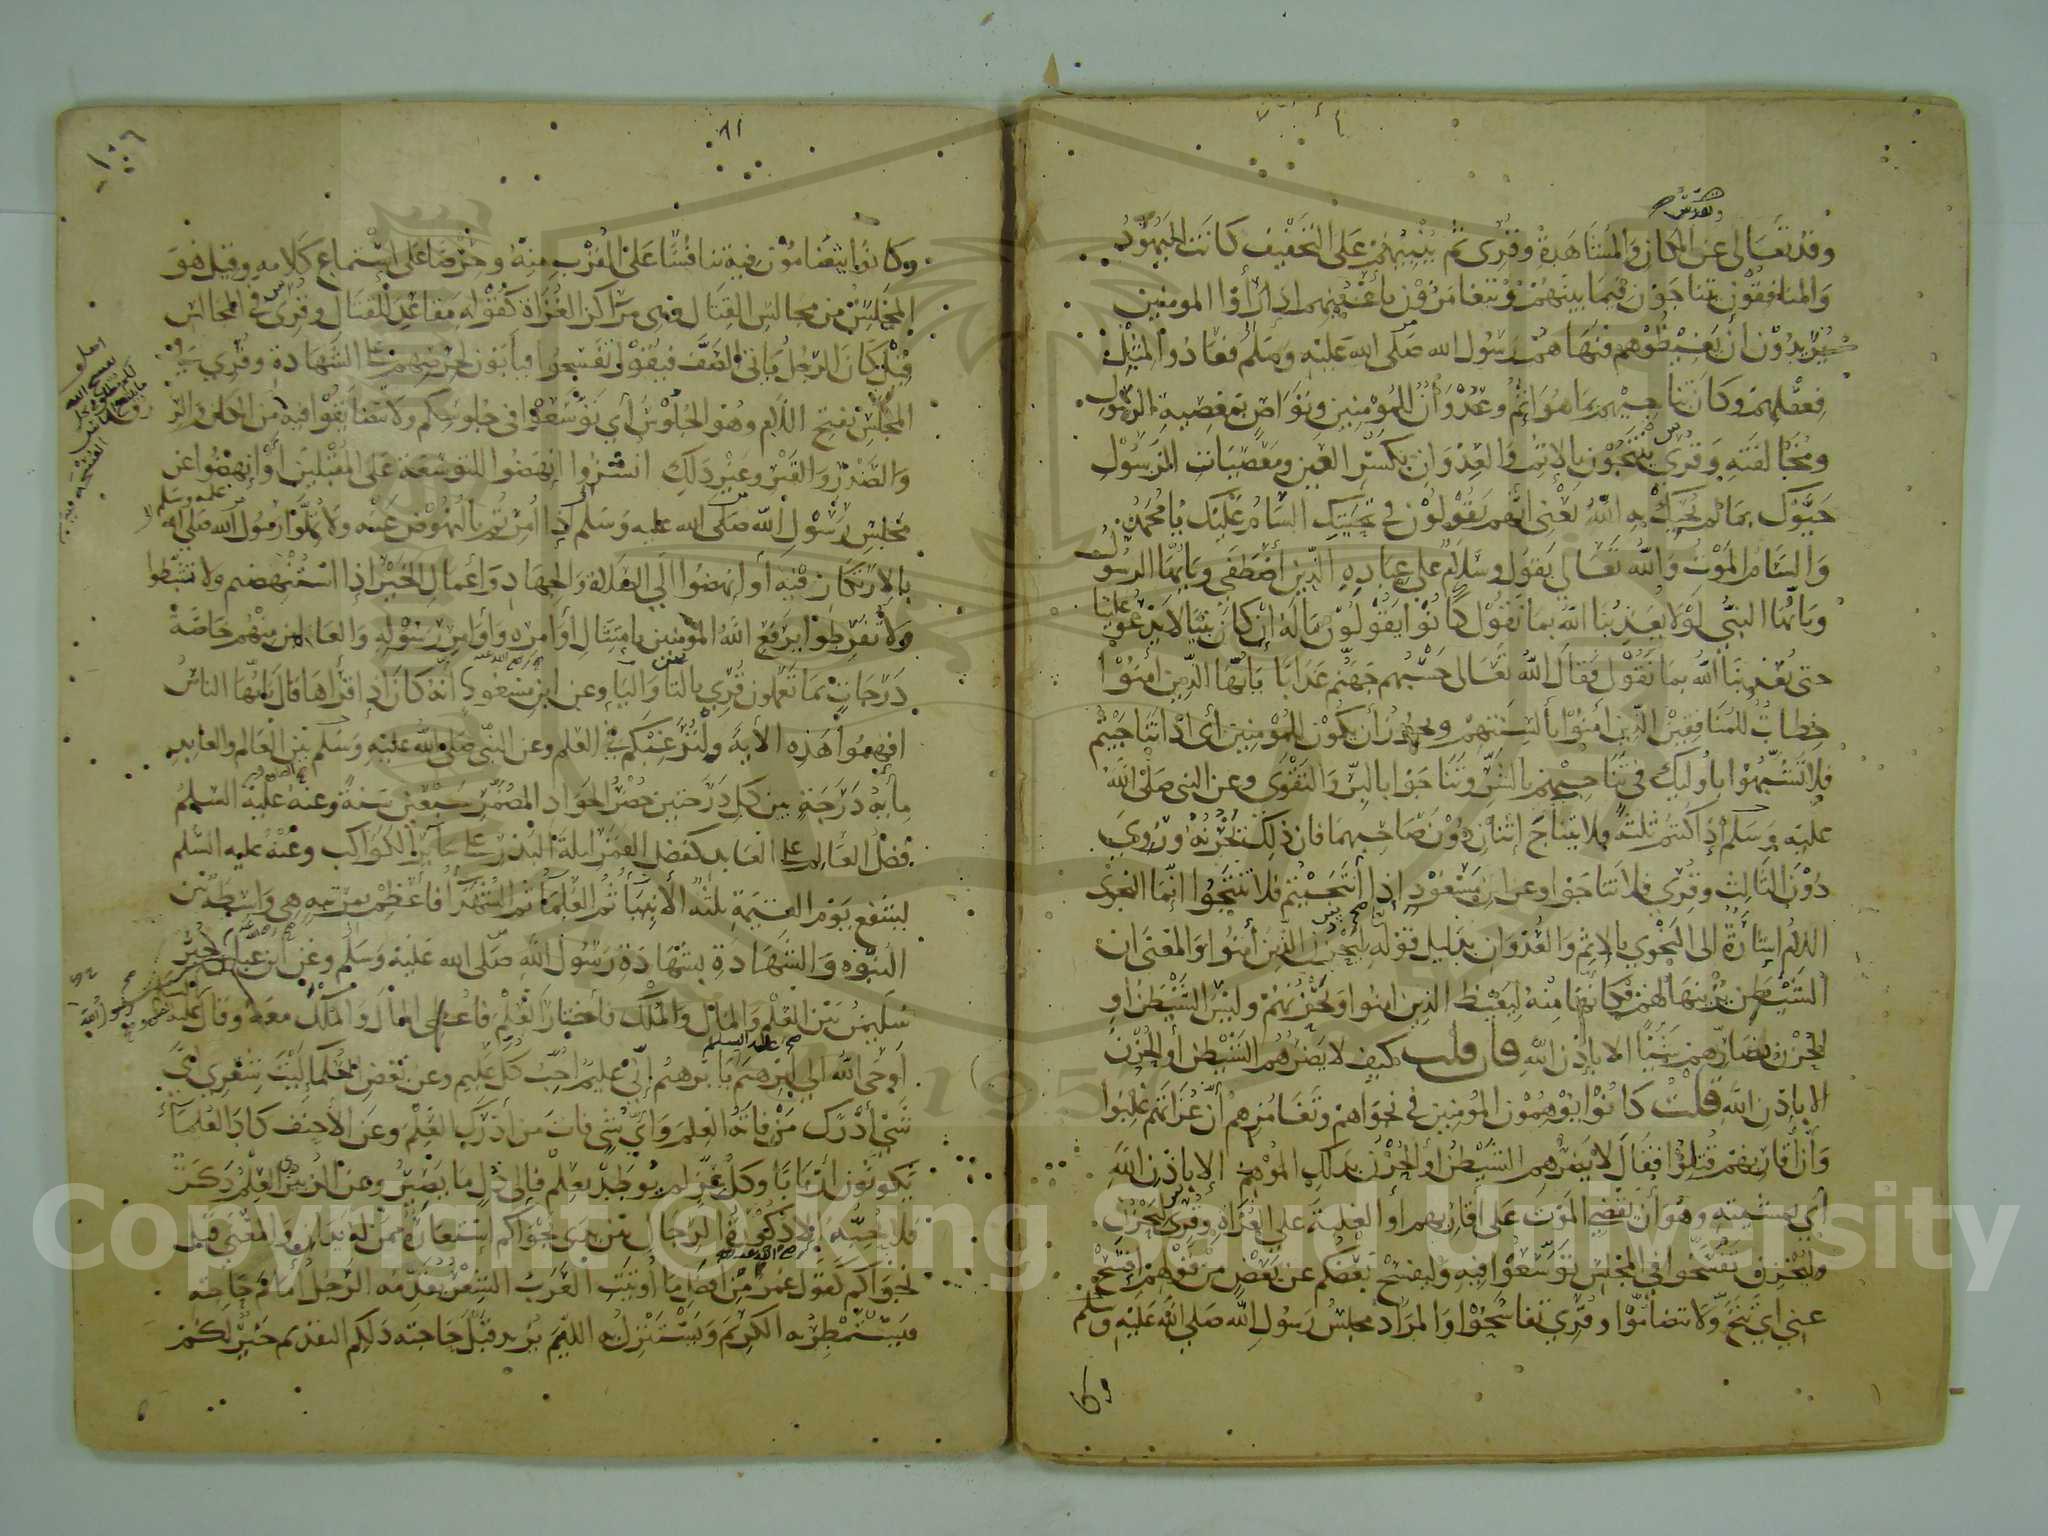 وتقدس
وقد تعالى عن المكان والمشاهدة وقرى ثم ينبيهم على التخفيف كانت اليهود
والمنافقون يتناجون فيما بينهم ويتغامزون بأعينهم اذا رأوا المومنين
يريدون ان يغيظوهم فنهاهم رسول الله صلى الله عليه وسلم فعادوا لمثل
فعلهم وكان تناجيهم بما هو اثم وعدوان للمؤمنين وتواص بمعصية الرسول
ومخالفته وقرى ينتجون بالاثم والعدوان بكسر العين ومعصيات الرسول
حيوك بما لم يحيك به الله يعنى انهم يقولون في تحيتك السام عليك يا محمد
والسام الموت والله تعالى يقول وسلام على عباده الذين اصطفى ويا ايها الرسول
ويا ايها النبي لولا يعذبنا الله بما نقول كانوا يقولون ما له ان كان نبيا لا يدعو علينا
حتى يعذبنا الله بما نقول فقال الله تعالى حسبهم جهنم عذابا يا ايها الذين امنوا
خطاب للمنافقين الذين امنوا بألسنتهم ويجوز أن يكون للمؤمنين أى اذا تناجيتم
فلا تتشبهوا باوليك في تناجيهم بالشر وتناجوا بالبر والتقوى وعن النبي صلى الله
عليه وسلم اذا كنتم ثلثة فلا يتناج اثنان دون صاحبهما فان ذلك يحزنه وروي
دون الثالث وقرى فلا تناجوا وعن ابن مسعود اذا انتجيتم فلا تنتجوا انما النجوى
اللام اشارة الى النجوى بالاثم والعدوان بدليل قوله ليحزن الذين امنوا والمعنى ان
الشيطن يزينها لهم فكانها منه ليغيظ الذين امنوا ويحزنهم وليس الشيطن او
الحزن بضارهم شيئا الا باذن الله فان قلت كيف لا يضرهم الشيطن او الحزن
الا باذن الله قلت كانوا يوهمون المومنين في نجواهم وتغامزهم أن غزاتهم غلبوا
وأن أقاربهم قتلوا فقال لا يضرهم الشيطن أو الحزن بذلك الموهم الا باذن الله
أي بمشيته وهو أن يقضي الموت على أقاربهم أو الغلبة على الغزاة وقرى ليحزن
وليحزن تفسحوا في المجلس توسعوا فيه وليفسح بعضكم عن بعض من قولهم افسح
عني اي تنح ولا تتضاموا وقرى تفاسحوا والمراد مجلس رسول الله صلى الله عليه وسلم
٨١
١٠٦
وكانوا يتضامون فيه تنافسا على القرب منه وحرصا على استماع كلامه وقيل هو
المجلس من مجالس القتال وهي مراكز الغزاة كقوله مقاعد للقتال وقرى في المجالس
قيل كان الرجل ياتي الصف فيقول تفسحوا فيأبون لحرصهم على الشهادة وقرى في
المجلس بفتح اللام وهو الجلوس أي توسعوا في جلوسكم ولا تتضايقوا فيه
والصدر والقبر وغير ذلك انشزوا انهضوا للتوسعة على المقبلين أو انهضوا عن
مجلس رسول الله صلى الله عليه وسلم اذا أمرتم بالنهوض عنه ولا تملوا رسول الله صلى الله
عليه وسلم
بالارتكاز فيه أو انهضوا الى الصلاة والجهاد وأعمال الخير اذا استنهضتم ولا تثبطوا
ولا تفرطوا يرفع الله المؤمنين بامتثال أوامره وأوامر رسوله والعالمين منهم خاصة
درجات بما تعملون قرى بالتا واليا وعن ابن مسعود أنه كان اذا قرأها قال يا ايها الناس
افهموا هذه الاية ولترغبكم في العلم وعن النبي صلى الله عليه وسلم بين العالم والعابد
ماية درجة بين كل درجتين حضر الجواد المضمر سبعين سنة وعنه عليه السلم
فضل العالم على العابد كفضل القمر ليلة البدر على سائر الكواكب وعنه عليه السلم
يشفع يوم القيمة ثلثة الأنبيا ثم العلما ثم الشهدا فأعظم بمرتبة هي واسطة بين
النبوة والشهادة بشهادة رسول الله صلى الله عليه وسلم وعن ابن عباس خير
سليمن بين العلم والمال والملك فأختار العلم فاعطى المال والملك معه وقال عليه
أوحى الله الى ابرهيم يا ابرهيم اني عليم احب كل عليم وعن بعض الحكما ليت شعري أي
شي أدرك من فاته العلم واي شي فات من أدرك العلم وعن الأحنف كاد العلما
يكونون اربابا وكل عز لم يوطد بعلم فالى ذل ما يصير وعن الزبيري العلم ذكر
فلا يحبه الا ذكورة الرجال بين يدى نجواكم استعارة ممن له يدان والمعنى قبل
نجواكم كقول عمر من أفضل ما أوتيت العرب الشعر يقدمه الرجل أمام حاجته
فيستمطر به الكريم ويستنزل به اللئيم يريد قبل حاجته ذلكم التقديم خير لكم